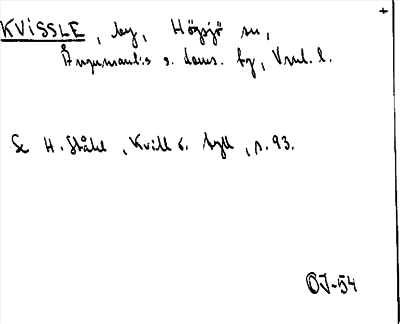 KVISSLE, by, Högsjö sn,
Ångermanl:s s. doms. fg, Vnl. l.
Se H. Ståhl, Kvill o. tyll, s. 93.
OJ-54